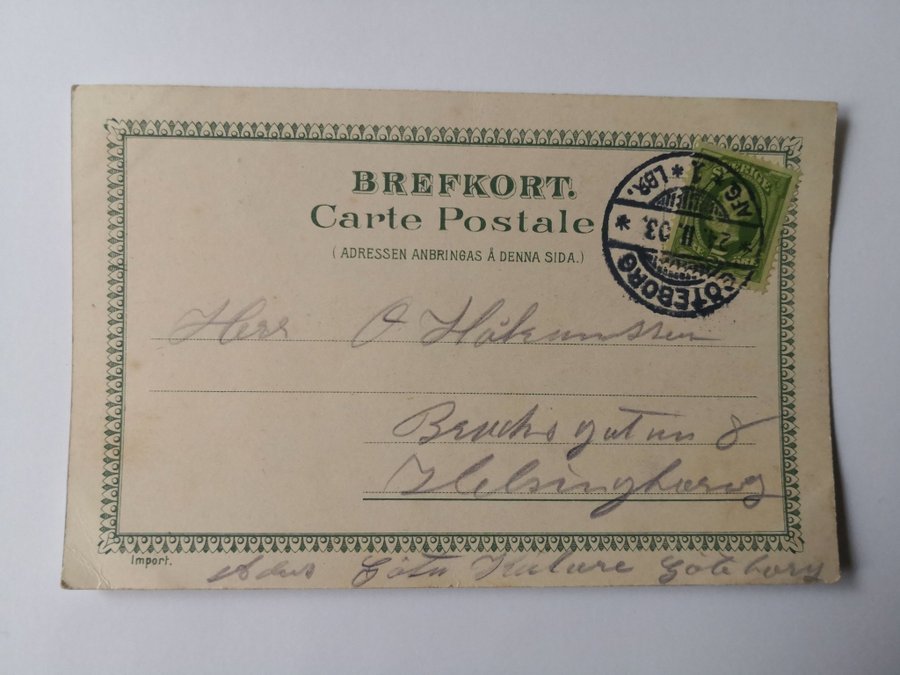 BREFKORT.
Carte Postale
( ADRESSEN ANBRINGAS Å DENNA SIDA.)
GÖTEBORG
LBR.
Herr O Håkansson
gatan 8
Helsingborg
Import.
Adrs Göta Göteborg